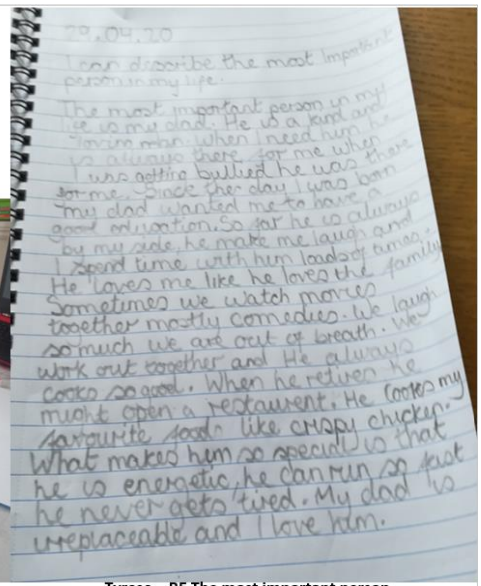 29.04.20
I can describe the most Important
person in my life.
The most important person in my
life is my dad. He is a kind and
loving man. When I need him he
is always there for me when
I was getting bullied he was there
for me. Since the day I was born
my dad wanted me to have a
good education. So far he is always
by my side, he make me laugh and
I spend time with him loads of times.
He loves me like he loves the family
Sometimes we watch movies
together mostly comedies. We laugh
so much we are out of breath. We
work out together and He always
cooks so good. When he retires he
might open a restaurent. He Cookes my
favourite food like crispy chicken.
What makes him so special is that
he is energetic, he can run so fast
he never gets tired. My dad is
irreplaceable and I love him.
The most important person